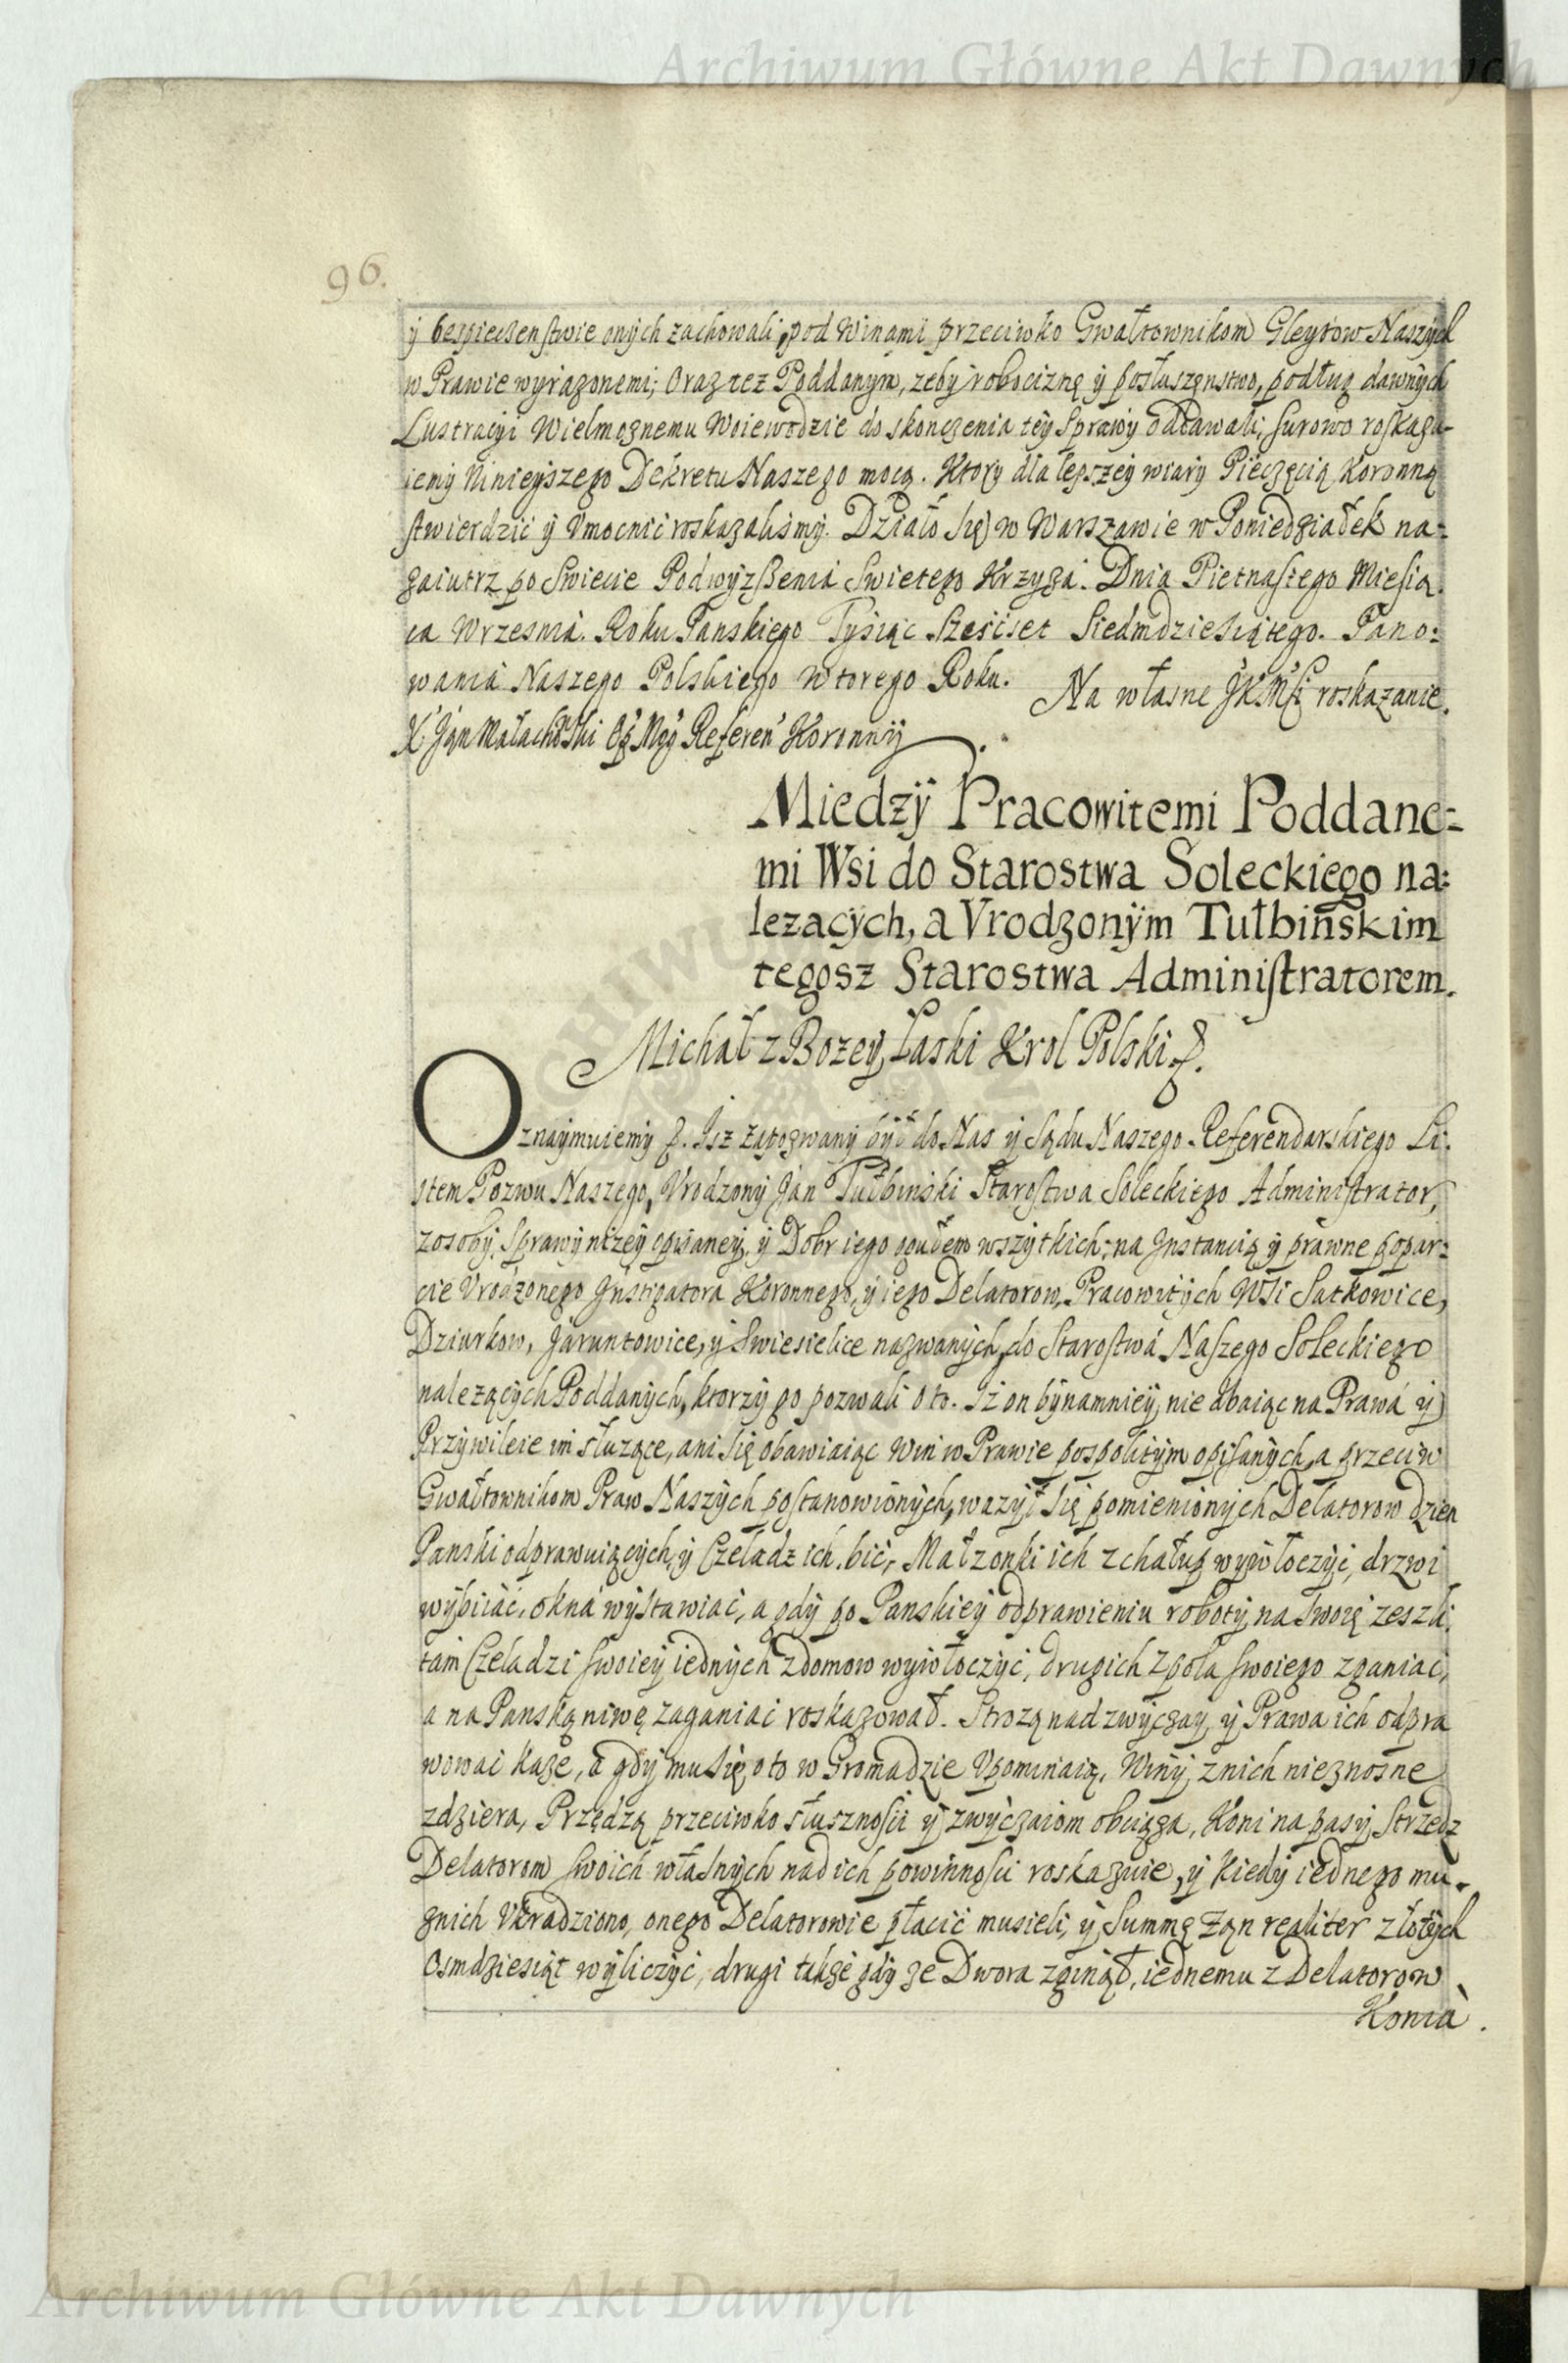 Archiwum Główne Akt Dawnych
96.
ÿ bezpieczenstwie onÿch zachowali, pod Winami przeciwko Gwałtownikom Gleÿtow Naszÿch
w Prawie wyrazonemi; Oraz tez Poddanÿm, zeby robociznę ÿ posłuszęnstwo, podług dawnÿch
Lustracÿi Wielmoznemu Woiewodzie do skonczenia teÿ Sprawÿ oddawali; surowo roskazu-
iemÿ Ninieÿszego Dekretu Naszego mocą. Ktorÿ dla lepszeÿ wiarÿ Pieczęcią Koronną
stwierdzic ÿ Vmocnic roskazalismÿ. Działo się w Warszawie w Poniedziałek na-
zaiutrz po Swiecie Podwÿzszenia Swietego Krzyza. Dnia Pietnastego Miesią-
ca Wrzesnia. Roku Panskiego Tysiąc Szescset Siedmdziesiątego. Pano-
wania Naszego Polskiego Wtorego Roku. Na własne JKMści roskazanie.
X Jan Małachowski Referen Koronnÿ
Miedzÿ Pracowitemi Poddane-
mi Wsi do Starostwa Soleckiego na-
lezacÿch, a Vrodzonÿm Tułbińskim
tegosz Starostwa Administratorem.
Michał z Bozeÿ Łaski Krol Polski &.
Oznaÿmuiemÿ &. Isz zapozwanÿ bÿł do Nas ÿ Sądu Naszego Referendarskiego Li-
stem Pozwu Naszego, Vrodzonÿ Jan Tułbinski Starostwa Soleckiego Administrator,
z osobÿ, Sprawÿ nizeÿ opisaneÿ, ÿ Dobr iego wszÿtkich; na Instancią ÿ prawne popar-
cie Vrodzonego Instigatora Koronnego, ÿ iego Delatorow, Pracowitÿch Wsi Satkowice,
Dziurkow, Jaruntowice, ÿ Swiesielice nazwanÿch, do Starostwa Naszego Soleckiego
nalezącÿch Poddanÿch, ktorzÿ go pozwali o to. Iż on bÿnamnieÿ, nie dbaiąc na Prawa ÿ
Przÿwileie im słuzące, ani się obawiaiąc win w Prawie pospolitÿm opisanÿch, a przeciw
Gwałtownikom Praw Naszÿch postanowionÿch, wazÿł się pomienionÿch Delatorow dzien
Panski odprawuiącÿch, ÿ Czeladz ich bić, Małzonki ich z chałup wÿwłoczÿć, drzwi
wÿbiiać, okna wÿstawiać, a gdÿ po Panskieÿ odprawieniu robotÿ na swoię zeszli,
tam Czeladzi swoieÿ iednÿch z domow wÿwłoczÿć, drugich z pola swoiego zganiać,
a na Panską niwę zaganiać roskazował. Strozą nad zwÿczaÿ, ÿ Prawa ich odpra
wować kaze, a gdÿ mu się o to w Gromadzie Vpominaią, Winÿ z nich nieznosne
zdziera, Przędzą przeciwko słusznosci ÿ zwÿczaiom obciąza, Koni na pasÿ Strzedz
Delatorom swoich własnÿch nad ich powinnosci roskazuie, ÿ kiedÿ iednego mu
z nich Vkradziono, onego Delatorowie płacić musieli, ÿ Summę zań realiter złotÿch
Osmdziesiąt wÿliczÿć, drugi także gdÿ ze Dwora zginął, iednemu z Delatorow
Konia.
Archiwum Główne Akt Dawnych